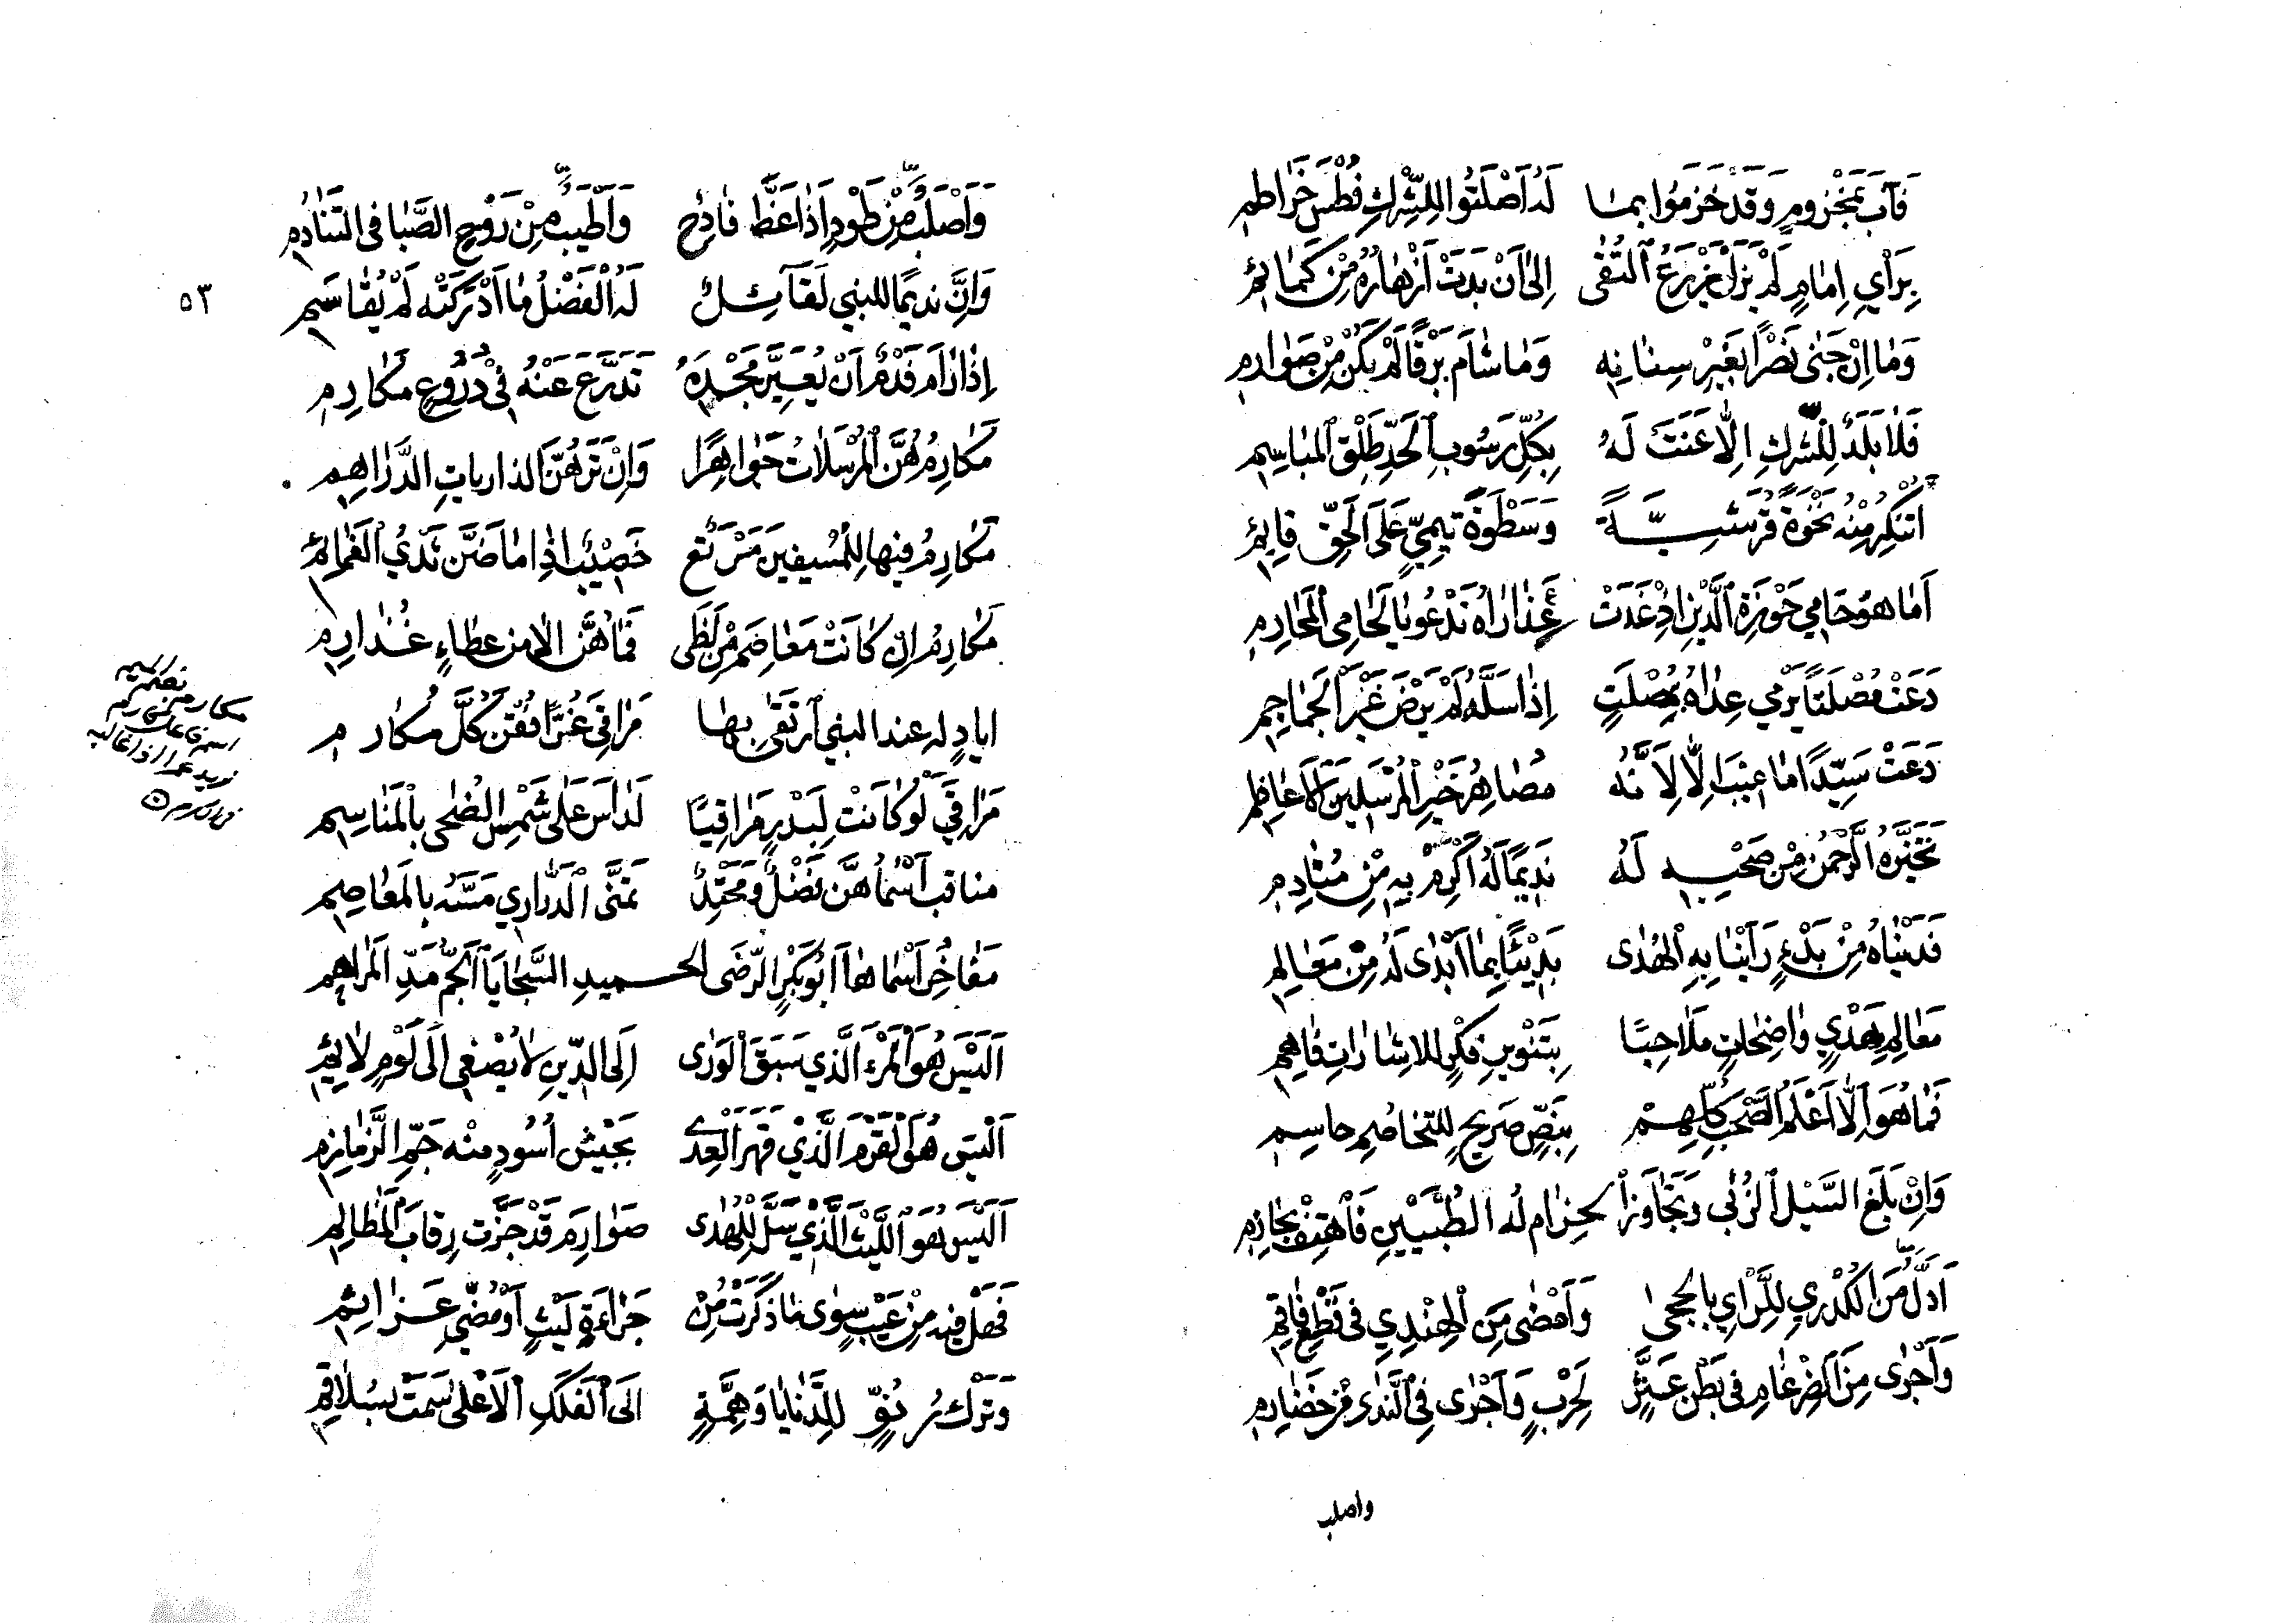 فَآبَ بِمَخْزُومٍ وَقَدْ خَزَمُوا بِمَا لَهُ أَصْلَتُوا لِلشِّرْكِ فُطْسَ خَرَاطِمِ
بِرَأْيِ إِمَامٍ لَمْ يَزَلْ يَزْرَعُ التُّقَى إِلَى أَنْ بَدَتْ أَزْهَارُهُ مِنْ كَمَائِمِ
وَمَا إِنْ جَنَى نَصْرًا بِغَيْرِ سِنَانِهِ وَمَا شَامَ بَرْقًا لَمْ يَكُنْ مِنْ صَوَارِمِ
فَلَا بَلَدٌ لِلشِّرْكِ إِلَّا عَنَتْ لَهُ بِكُلِّ رَسُوبِ الْحَدِّ طَلْقِ الْمَبَاسِمِ
أَتُنْكِرُ مِنْهُ نَخْوَةً قُرَشِيَّةً وَسَطْوَةَ تَيْمِيٍّ عَلَى الْحَقِّ قَائِمِ
أَمَا هُوَ حَامِي حَوْزَةِ الدِّينِ إِذْ غَدَتْ عَذَارَاهُ تَدْعُو يَا لَحَامِي الْمَحَارِمِ
دَعَتْ مُصْلَتًا يَرْمِي عِدَاهُ بِمُصْلَتٍ إِذَا سَلَّهُ لَمْ يَرْضَ غَيْرَ الْجَمَاجِمِ
دَعَتْ سَيِّدًا مَا عِيبَ إِلَّا لِأَنَّهُ مُصَاهِرُ خَيْرِ الْمُرْسَلِينَ الْأَعَاظِمِ
تَخَيَّرَهُ الرَّحْمٰنُ مِنْ صَحْبِهِ لَهُ نَدِيمًا لَهُ أَكْرِمْ بِهِ مِنْ مُنَادِمِ
فَدَيْنَاهُ مِنْ بَدْءٍ رَأَيْنَا بِهِ الْهُدَى بَدِيئًا بِمَا أَبْدَى لَهُ مِنْ مَعَالِمِ
مَعَالِمِ هَدْيٍ وَاضِحَاتٍ مَلَاحِبًا بِتَنْوِيرِ فِكْرٍ لِلْإِشَارَاتِ فَاهِمِ
فَمَا هُوَ إِلَّا أَعْلَمُ الصَّحْبِ كُلِّهِمْ بِنَصٍّ صَرِيحٍ لِلتَّخَاصُمِ حَاسِمِ
وَإِنْ بَلَغَ السَّيْلُ الزُّبَى وَتَجَاوَزَ الْحِزَامُ لَهُ الطُّبْيَيْنِ فَاهْتِفْ بِحَازِمِ
أَدَلُّ مِنَ الْكُدْرِيِّ لِلرَّأْيِ بِالْحِجَى وَأَمْضَى مِنَ الْهِنْدِيِّ فِي قَطْعِ فَاقِمِ
وَأَجْرَى مِنَ الضِّرْغَامِ فِي بَطْنِ عَثَّرٍ لِحَرْبٍ وَأَجْرَى فِي النَّدَى مِنْ خَضَارِمِ
واصلب
وَأَصْلَبُ مِنْ طَوْدٍ إِذَا عَظَّ فَادِحٌ وَأَطْيَبُ مِنْ رَوْحِ الصَّبَا فِي التَّنَادُمِ
٥٣
وَإِنَّ نَدِيمًا لِلنَّبِيِّ لَقَائِلٌ لَهُ الْفَضْلُ مَا أَدْرَكْتَهُ لَمْ يُقَاسَمِ
إِذَا رَامَ فَدْمٌ أَنْ يُعَيِّرَ مَجْدَهُ تَدَرَّعَ عَنْهُ فِي دُرُوعِ مَكَارِمِ
مَكَارِمُ هُنَّ الْمُرْسَلَاتُ جَوَاهِرًا وَإِنْ تَرَهُنَّ الذَّارِيَاتِ الدَّرَاهِمِ
مَكَارِمُ فِيهَا لِلْمُسِيفِينَ مَرْتَعٌ خَصِيبٌ إِذَا مَا ضَنَّ نَدْيُ الْغَمَائِمِ
مَكَارِمُ إِنْ كَانَتْ مَعَاصِمَ مِنْ لَظَى فَمَا هُنَّ إِلَّا مِنْ عَطَاءٍ غُذَارِمِ
أَيَادٍ لَهُ عِنْدَ النَّبِيِّ ارْتَقَى بِهَا مَرَاقِيَ غُرًّا فُقْنَ كُلَّ مَكَارِمِ
مَرَاقِيَ لَوْ كَانَتْ لِبَدْرٍ مَرَاقِيًا لَدَاسَ عَلَى شَمْسِ الضُّحَى بِالْمَنَاسِمِ
مَنَاقِبُ أَسْمَاهُنَّ فَضْلٌ وَمَحْتِدٌ تَمَنَّى الدَّرَارِي مَسَّهُ بِالْمَعَاصِمِ
مَفَاخِرُ أَسْمَاهَا أَبُو بَكْرٍ الرِّضَى الْحَمِيدِ السَّجَايَا الْجَمِّ مَدِّ الْمَرَاهِمِ
أَلَيْسَ هُوَ الْمَرْءَ الَّذِي سَبَقَ الْوَرَى إِلَى الدِّينِ لَا يُصْغِي إِلَى لَوْمِ لَائِمِ
أَلَيْسَ هُوَ الْقَرْمَ الَّذِي قَهَرَ الْعِدَى بِجَيْشِ أُسُودٍ مِنْهُ جَمِّ الزَّمَازِمِ
أَلَيْسَ هُوَ اللَّيْثَ الَّذِي سَلَّ لِلْهُدَى صَوَارِمَ قَدْ جَزَّتْ رِقَابَ الْمَظَالِمِ
فَهَلْ فِيهِ مِنْ عَيْبٍ سِوَى مَا ذَكَرْتُ مِنْ جَرَاءَةِ لَيْثٍ أَوْ مُضِيِّ عَزَائِمِ
وَتَرْكِ دُنُوٍّ لِلدَّنَايَا وَهِمَّةٍ إِلَى الْفَلَكِ الْأَعْلَى سَمَتْ بِسَلَاقِمِ